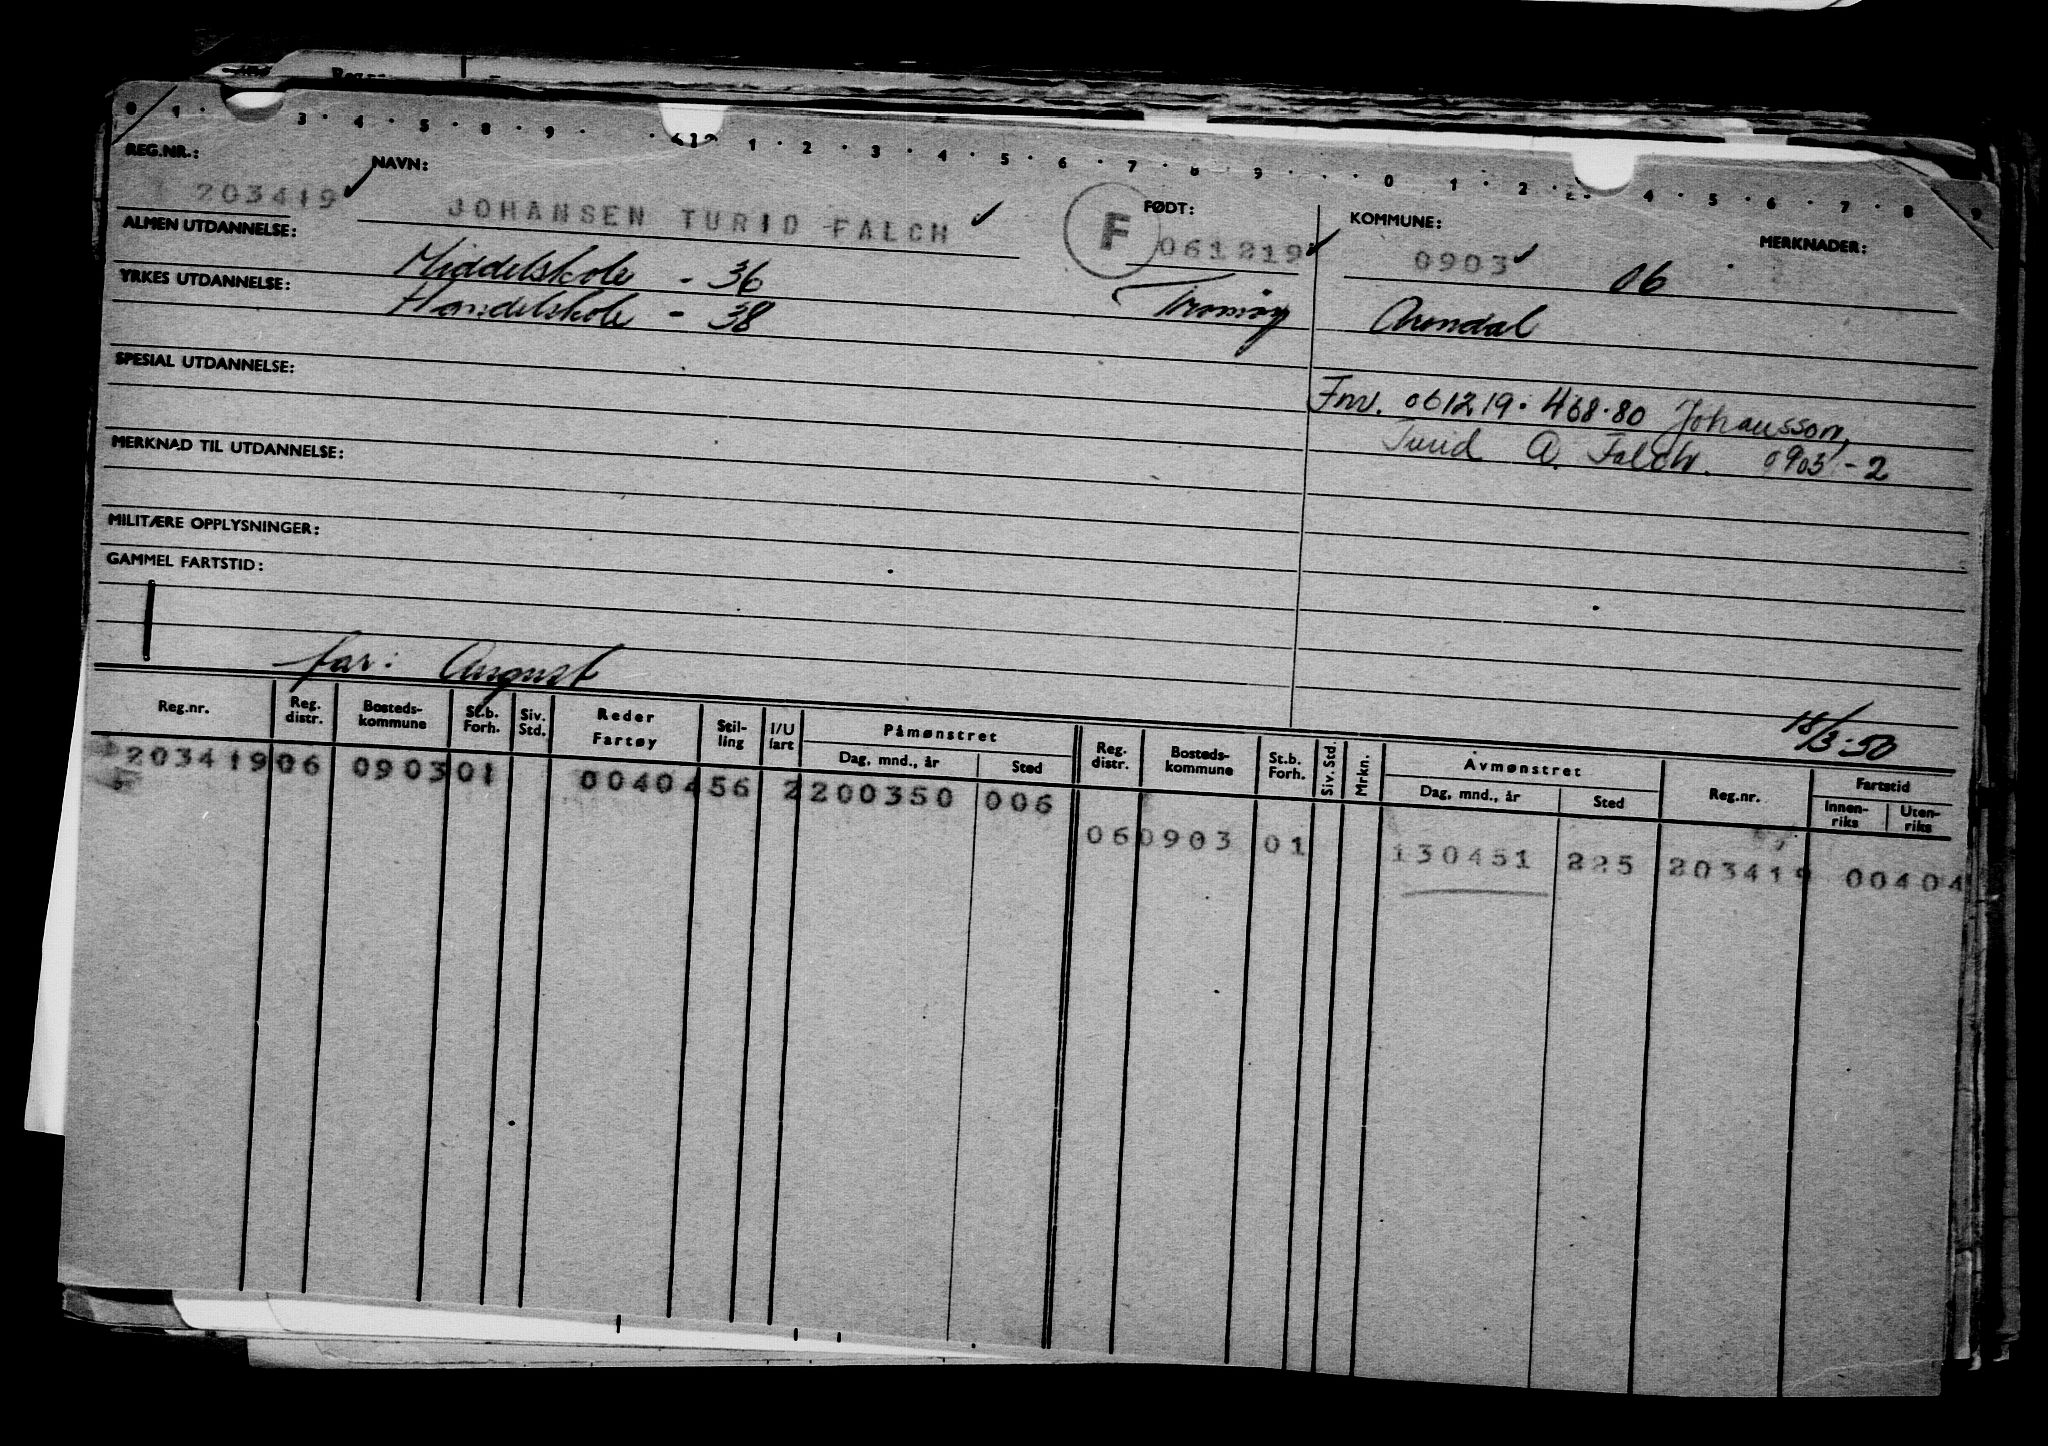 REG.NR.:
203419
NAVN:
JOHANSEN TURID FALCH
F
FØDT:
061219
KOMMUNE:
0903
06
MERKNADER:
ALMEN UTDANNELSE:
Middelskole - 36
YRKES UTDANNELSE:
Handelskole - 38
Tromøy
Arendal
SPESIAL UTDANNELSE:
Fnr. 061219.468.80 Johansson,
Turid A. Falch. 0903-2
MERKNAD TIL UTDANNELSE:
MILITÆRE OPPLYSNINGER:
GAMMEL FARTSTID:
far: August
18/3-50
Reg.nr.
Reg. distr.
Bosteds-kommune
St.b. Forh.
Siv. Std.
Reder
Fartøy
Stil-ling
I/U fart
Påmønstret
Dag, mnd., år
Sted
Reg. distr.
Bosteds-kommune
St.b. Forh.
Siv. Std.
Mrkn.
Avmønstret
Dag, mnd., år
Sted
Reg.nr.
Fartstid
Innen-riks
Uten-riks
203419 06 0903 01 00404 56 2 200350 006
06 0903 01 130451 225 203419 00404